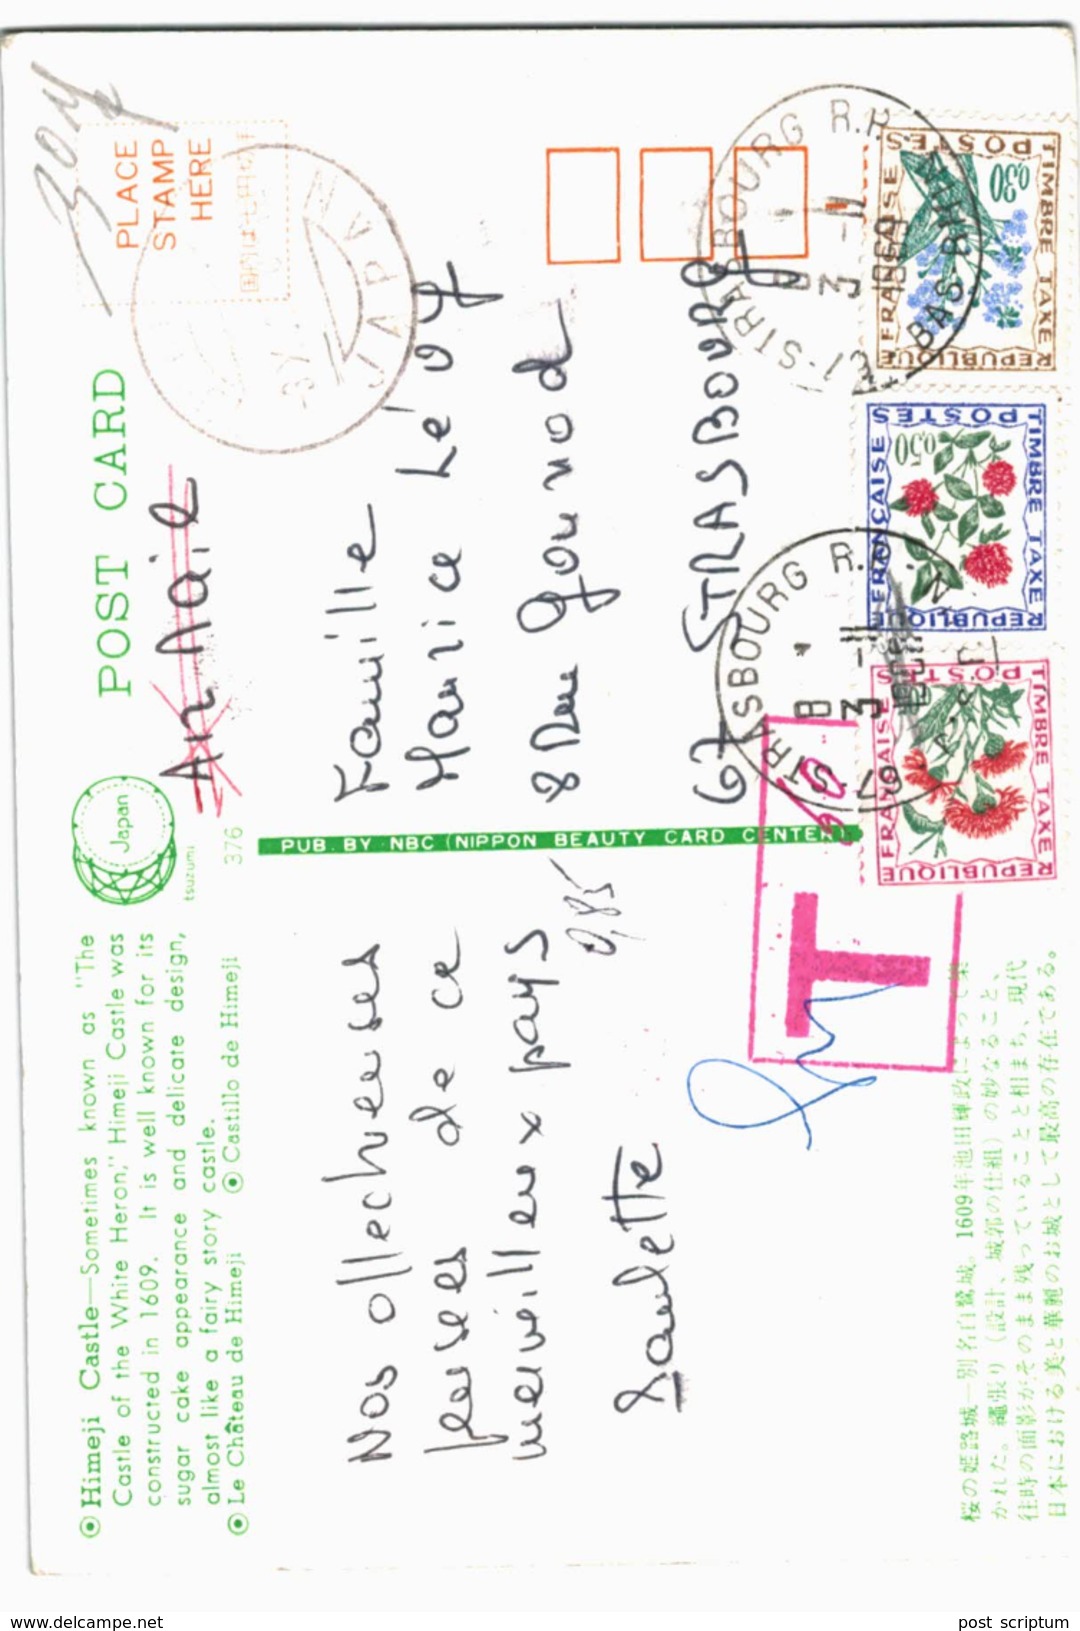 ◉ Himeji Castle—Sometimes known as "The
Castle of the White Heron," Himeji Castle was
constructed in 1609. It is well known for its
sugar cake appearance and delicate design,
almost like a fairy story castle.
◉ Le Château de Himeji ◉ Castillo de Himeji
Japan
tsuzumi
376
POST CARD
PLACE
STAMP
HERE
JAPAN
Air Mail
Nos
pensées de ce
merveilleux pays
Paulette
0,85
PUB. BY NBC (NIPPON BEAUTY CARD CENTER)
Famille
Maurice Lévy
8 Rue Gounod
67 STRASBOURG
T
67 STRASBOURG R.P.
67 STRASBOURG R.P. BAS RHIN
8 -11
3 1969
REPUBLIQUE FRANÇAISE
POSTES
0,30
TIMBRE TAXE
REPUBLIQUE FRANÇAISE
POSTES
0,50
TIMBRE TAXE
REPUBLIQUE FRANÇAISE
POSTES
TIMBRE TAXE
桜の姫路城—別名白鷺城。1609年池田輝政によって築
かれた。縄張り（設計、城郭の仕組）の妙なること、
往時の面影がそのまま残っていることと相まち、現代
日本における美と華麗のお城として最高の存在である。
www.delcampe.net
post scriptum